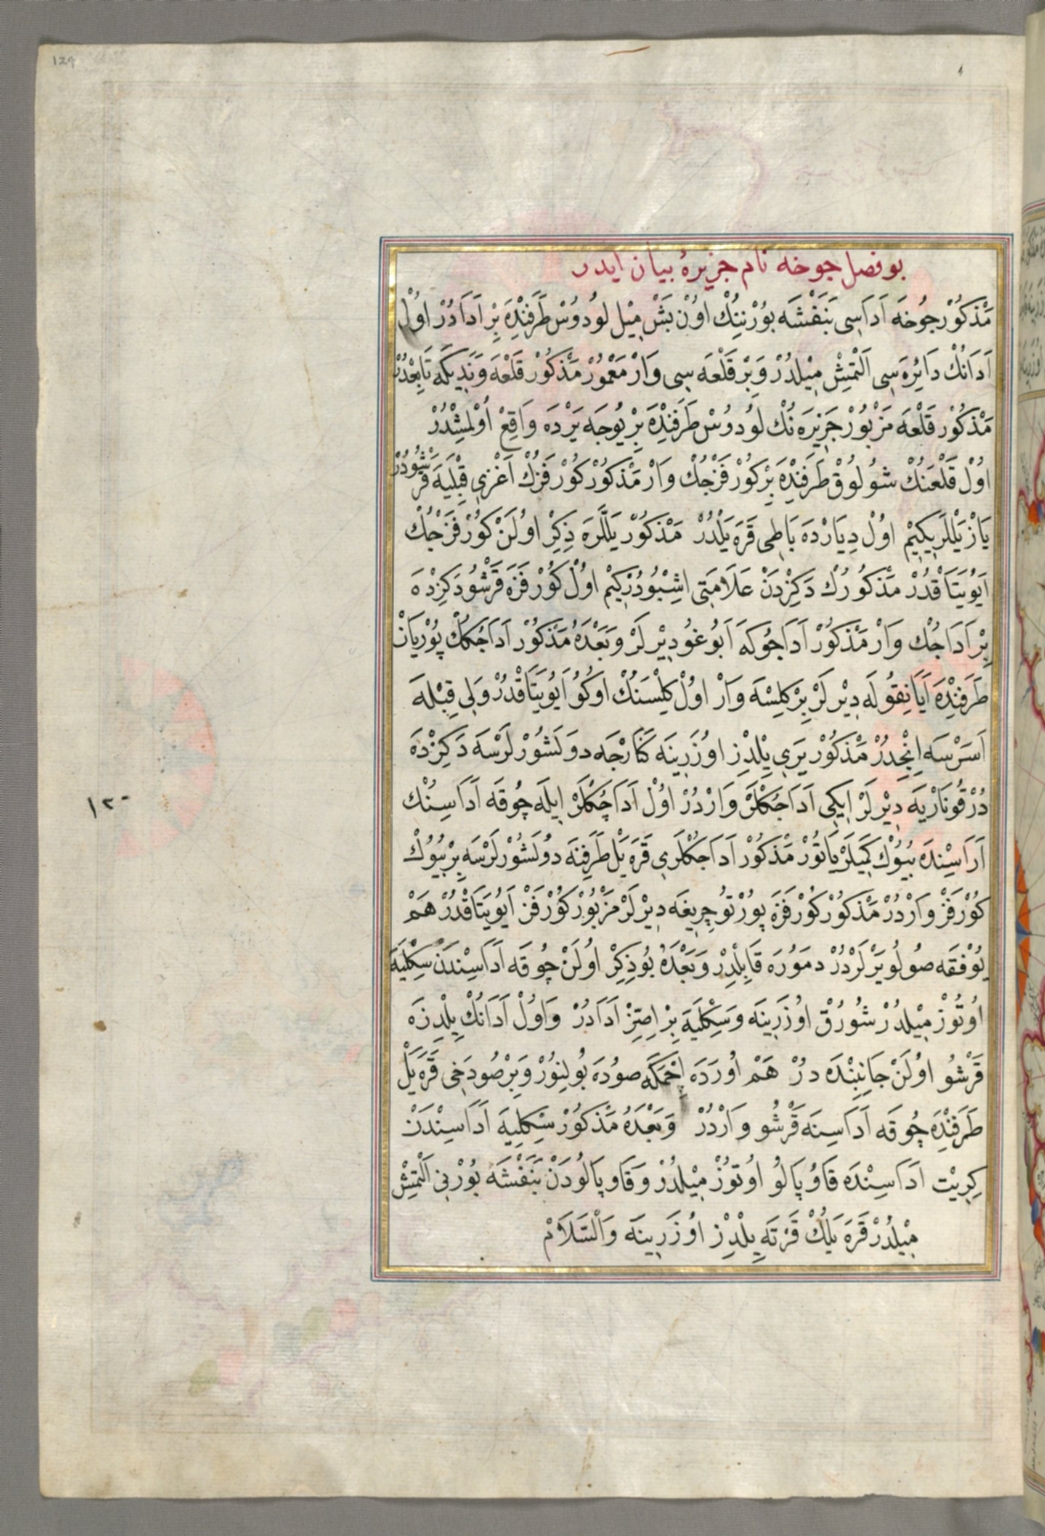 129
بو فصل جوخه نام جزيرهٔ بيان ايدر
مَذْكُورْ جُوخَه اَدَاسِى بَنَفْشَه بُورْنِنُكْ اوُنْ بَشْ مِيْل لوُدُوسْ طَرَفِنْدَه بِرْ اَدَادُرْ اوُلْ
اَدَانُكْ دَائِرَه سِى اَلْتْمِشْ مِيْلْدُرْ وَبِرْ قَلْعَه سِى وَارْ مَعْمُورْ مَذْكُورْ قَلْعَه وَنَدِيكَه تَابِعْدُرْ
مَذْكُورْ قَلْعَه مَزْبُورْ جَزِيرَه نُكْ لوُدُوسْ طَرَفِنْدَه بِرْ يُوجَه يَرْدَه وَاقِعْ اُولْمِشْدُرْ
اوُلْ قَلْعَنُكْ شُولُوقْ طَرَفِنْدَه بِرْ كُورْفَزْجُكْ وَارْ مَذْكُورْ كُورْفَزُكْ اَغْزِى قِبْلَيَه قَرْشُودُرْ
يَازْ يَلْلَرِيكِيمْ اوُلْ دِيَارْدَه بَاطِى قَرَه يَلْدُرْ مَذْكُورْ يَلْلَرَه ذِكِرْ اوُلَنْ كُورْفَزْجُكْ
اَيُو يَتَاقْدُرْ مَذْكُورُكْ دَكِزْدَنْ عَلَامَتِى اِشْبُودُرْكِيمْ اوُلْ كُورْفَزَه قَرْشُو دَكِزْدَه
بِرْ اَدَاجُكْ وَارْ مَذْكُورْ اَدَاجُوكَه اَبُوغُو دِيرْلَرْ وَبَعْدَهُ مَذْكُورْ اَدَاجُكُكْ پُورْيَازْ
طَرَفِنْدَه اَيَانِقُولَه دِيرْلَرْ بِرْ كِلِسَه وَارْ اوُلْ كِلْسَنُكْ اوُكُو اَيُو يَتَاقْدُرْ وَلِى قِبْلَه
اَسَرْسَه اِنْجِدُرْ مَذْكُورْ يَرِى يِلْدِزْ اوُزَرِينَه كَنَارْجَه دُولَشُورْلَرْسَه دَكِزْدَه
دُرْقُونَارْيَه دِيرْلَرْ اِيكِى اَدَاجُكْلَرْ وَارْدُرْ اوُلْ اَدَاجُكْلَرْ اِيلَه چُوقَه اَدَاسِنُكْ
اَرَاسِنْدَه بُيُوكْ كَمِيلَرْ يَاتُورْ مَذْكُورْ اَدَاجُكْلَرِى قَرَه يَلْ طَرَفِنَه دُولَشُورْلَرْسَه بِرْ بُيُوكْ
كُورْفَزْ وَارْدُرْ مَذْكُورْ كُورْفَزَه پُورْتُو چِرِيغَه دِيرْلَرْ مَزْبُورْ كُورْفَزْ اَيُو يَتَاقْدُرْ هَمْ
يُوفْقَه صُولُو يَرْلَرْدُرْ دمَوُرَه قَابِلْدِرْ وَبَعْدَهُ بُو ذِكِرْ اوُلَنْ چُوقَه اَدَاسِنْدَنْ سِكِلْيَه
اوُتُوزْ مِيْلْدُرْ شُورُقْ اوُزَرِينَه وَسِكِلْيَه بِرْ اِصِزْ اَدَادُرْ وَاوُلْ اَدَانُكْ يِلْدِزَه
قَرْشُو اوُلَنْ جَانِبِنْدَه دُرْ هَمْ اوُرَدَه اِچْمَكَه صُودَه بُولِنُورْ وَبِرْ صُو دَخِى قَرَه يَلْ
طَرَفِنْدَه چُوقَه اَدَاسِنَه قَرْشُو وَارْدُرْ وَبَعْدَهُ مَذْكُورْ سِكِلِيَه اَدَاسِنْدَنْ
كِرِيْت اَدَاسِنْدَه قَاوُپَالُو اوُتُوزْ مِيْلْدُرْ وَقَاوپَالُودَنْ بَنَفْشَه بُورْنِى اَلْتْمِشْ
مِيْلْدُرْ قَرَه يَلُكْ قَرْتَه يِلْدِزْ اوُزَرِينَه وَالسَّلَامْ
١٢٠